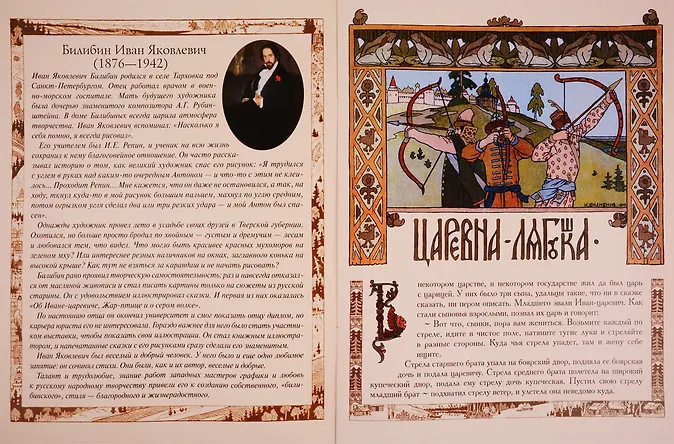 Билибин Иван Яковлевич
(1876—1942)
Иван Яковлевич Билибин родился в селе Тарховка под
Санкт-Петербургом. Отец работал врачом в воен-
но-морском госпитале. Мать будущего художника
была дочерью знаменитого композитора А.Г. Рубин-
штейна. В доме Билибиных всегда царила атмосфера
творчества. Иван Яковлевич вспоминал: «Насколько я
себя помню, я всегда рисовал».
Его учителем был И.Е. Репин, и ученик на всю жизнь
сохранил к нему благоговейное отношение. Он часто расска-
зывал историю о том, как великий художник спас его рисунок: «Я трудился
с углем в руках над каким-то очередным Антоном — и что-то с этим не клеи-
лось... Проходит Репин... Мне кажется, что он даже не остановился, а так, на
ходу, ткнул куда-то в мой рисунок большим пальцем, махнул по углю средним,
потом огрызком угля сделал два или три резких удара — и мой Антон был спа-
сен».
Однажды художник провел лето в усадьбе своих друзей в Тверской губернии.
Охотился, но больше просто бродил по хвойным — густым и дремучим — лесам
и любовался тем, что видел. Что могло быть красивее красных мухоморов на
зеленом мху? Или интереснее резных наличников на окнах, заглавного конька на
высокой крыше? Как тут не взяться за карандаш и не начать рисовать?
Билибин рано проявил творческую самостоятельность: раз и навсегда отказал-
ся от масляной живописи и стал писать картины только на сюжеты из русской
старины. Он с удовольствием иллюстрировал сказки. И первая из них оказалась
«Об Иване-царевиче, Жар-птице и о сером волке».
По настоянию отца он окончил университет и смог показать отцу диплом, но
карьера юриста его не интересовала. Гораздо важнее для него было стать участни-
ком выставки, чтобы показать свои иллюстрации. Он стал книжным иллюстра-
тором, и напечатанные сказки с его рисунками сразу сделали его знаменитым.
Иван Яковлевич был веселый и добрый человек. У него было и еще одно любимое
занятие: он сочинял стихи. Они были, как и их автор, веселые и добрые.
Талант и трудолюбие, знание работ западных мастеров графики и любовь
к русскому народному творчеству привели его к созданию собственного, «били-
бинского», стиля — благородного и жизнерадостного.
ЦАРЕВНА-ЛЯГУШКА.
В
некотором царстве, в некотором государстве жил да был царь
с царицей. У них было три сына, удальцы такие, что ни в сказке
сказать, ни пером описать. Младшего звали Иван-царевич. Как
стали сыновья взрослыми, позвал их царь и говорит:
~ Вот что, сынки, пора вам жениться. Возьмите каждый по
стреле, идите в чистое поле, натяните тугие луки и стреляйте
в разные стороны. Куда чья стрела упадет, там и жену себе
ищите.
Стрела старшего брата упала на боярский двор, подняла ее боярская
дочь и подала царевичу. Стрела среднего брата полетела на широкий
купеческий двор, подала ему стрелу дочь купеческая. Пустил свою стрелу
младший брат ~ подхватил стрелу ветер, и улетела она неведомо куда.